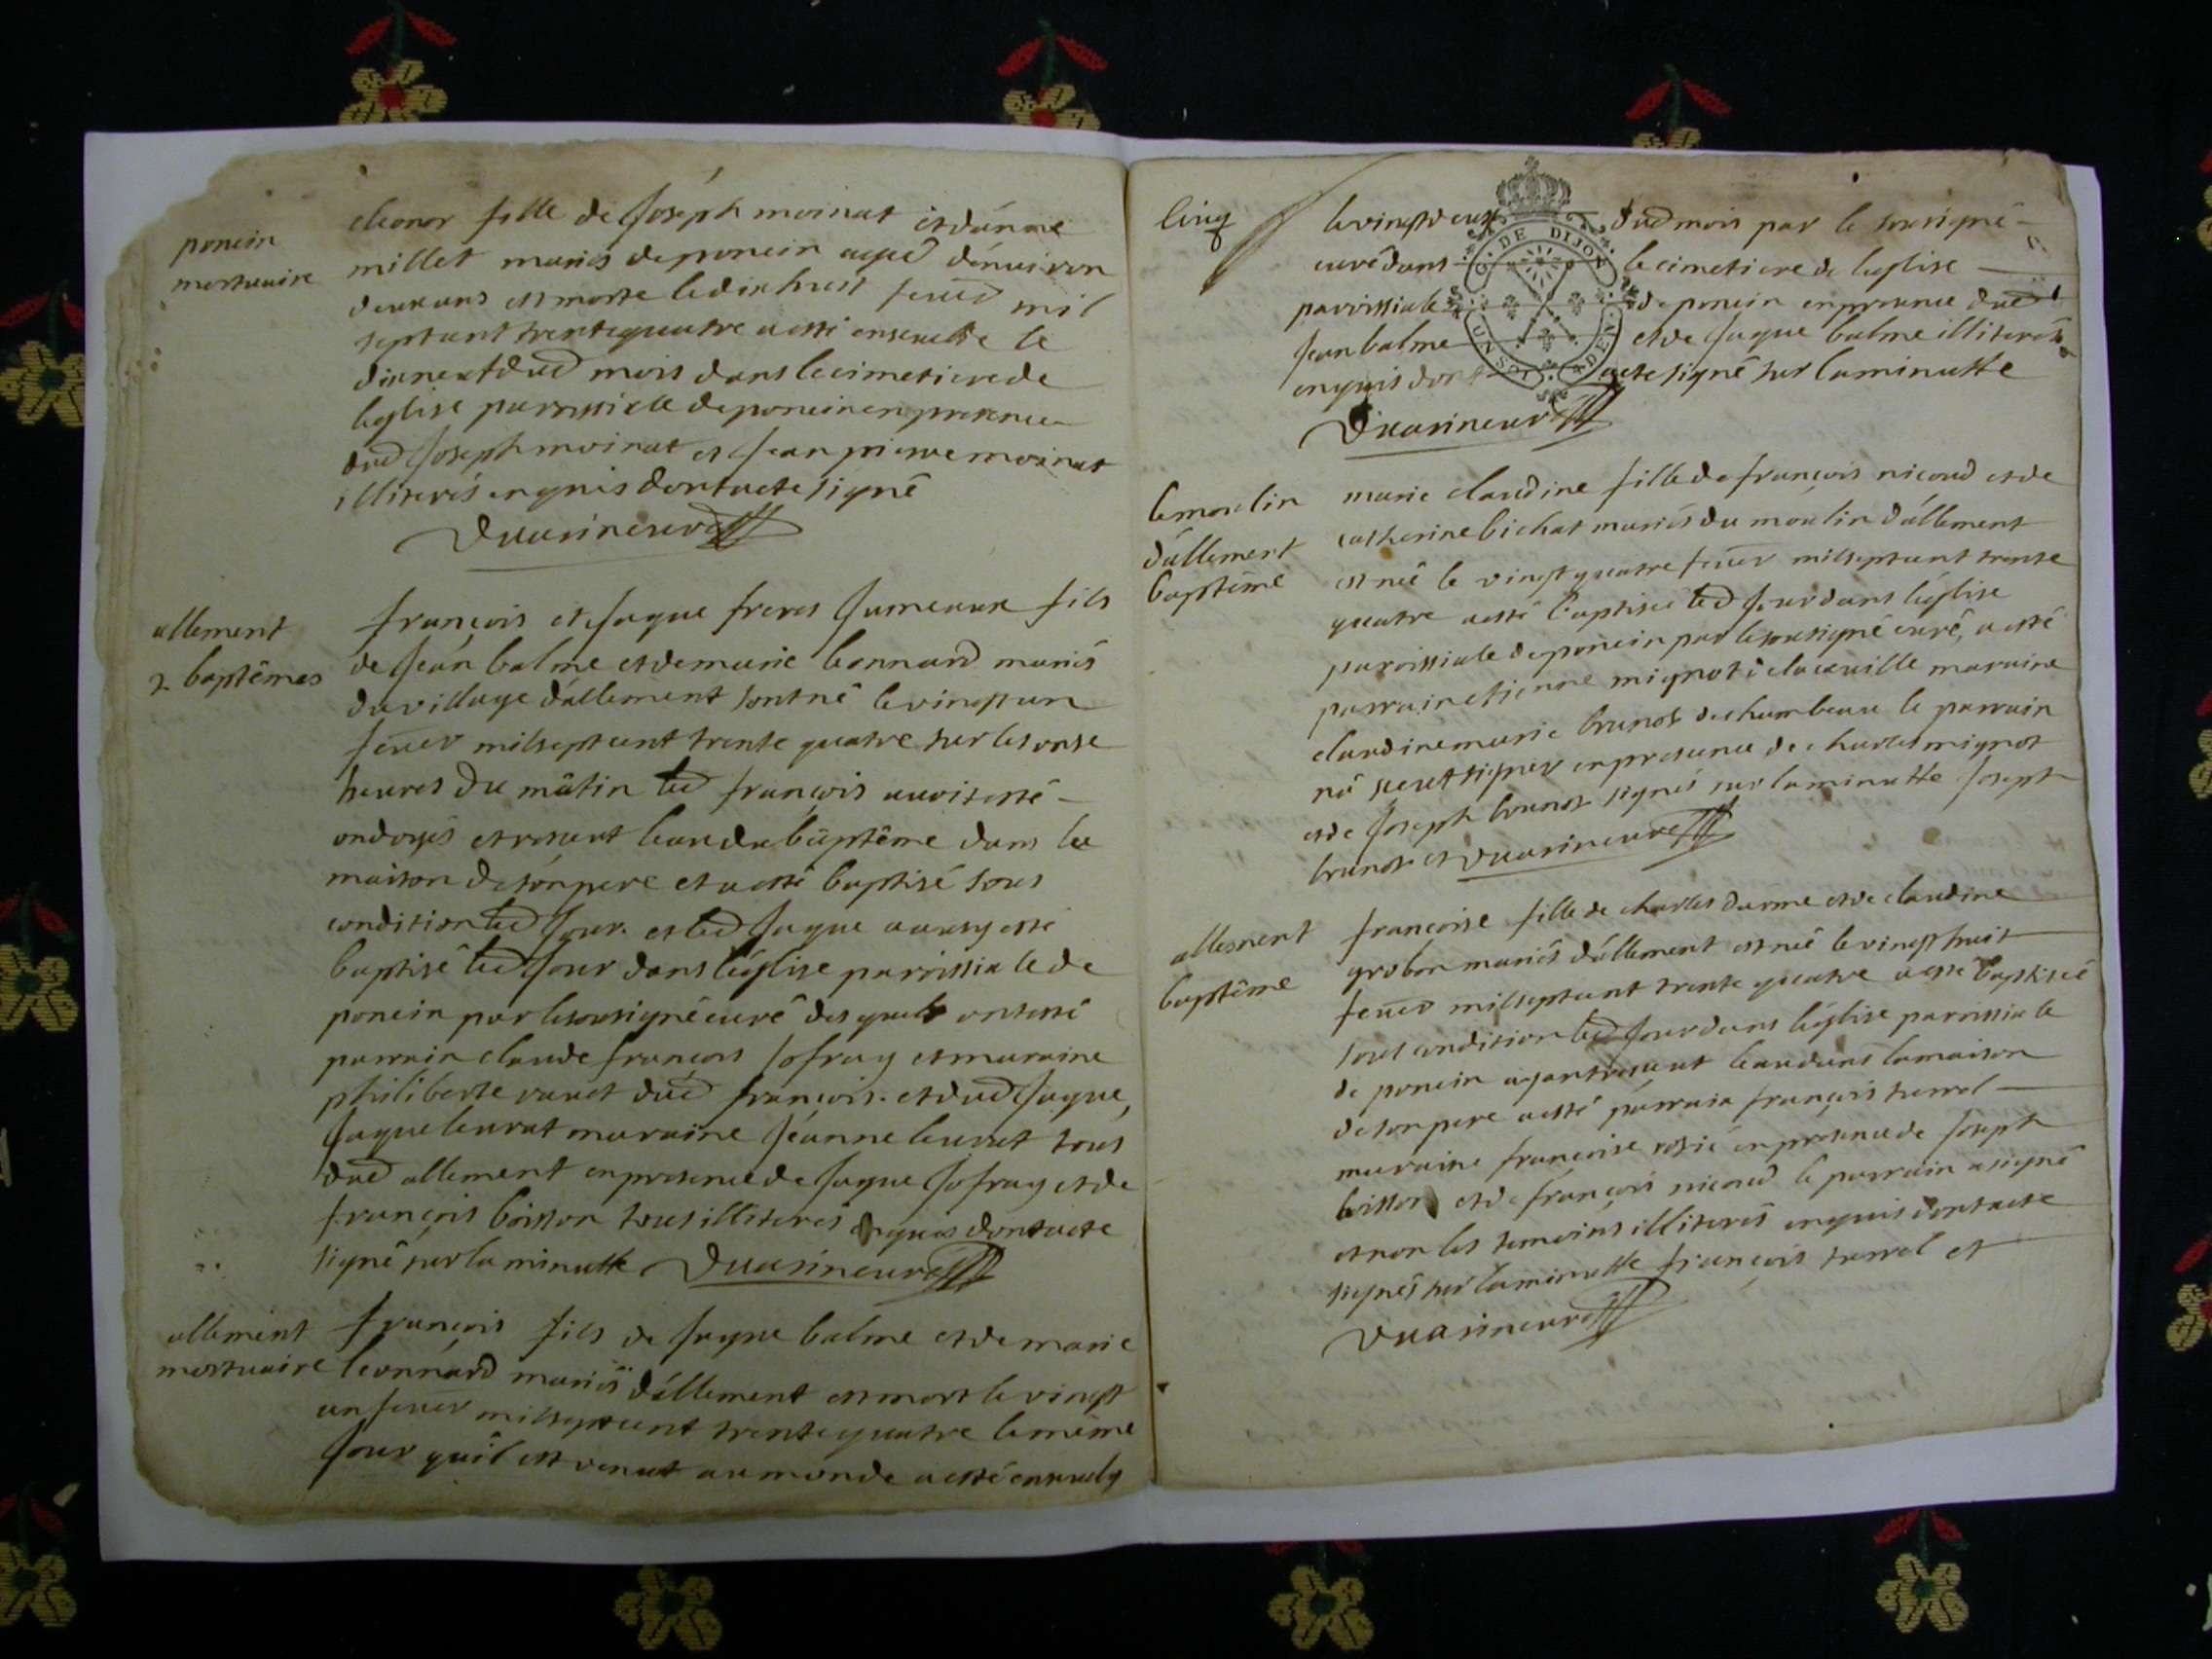 poncin
mortuaire
eleonor fille de Joseph moinat et d'anne
millet mariés de poncin agée d'environ
deux ans est morte le dix huit feuer mil
sept cent trente quatre a esté enseuelie le
dix neuf dud mois dans le cimetiere de
leglise parroissialle de poncin en presence
dud Joseph moinat et Jean pierre moinat
illiterés enquis dont acte signé
Duuasine curé
allement
2 baptêmes
françois et Jaque freres Jumeaux fils
de Jean balme et de marie leonnard mariés
du village d'allement sont né le vingt un
feuer mil sept cent trente quatre sur les onse
heures du mâtin led françois auoit esté
ondoyés et reseut leau du baptême dans la
maison de son pere et a esté baptisé sous
condition led Jour. et led Jaque a aussy esté
baptisé led Jour dans léglise parroissiale de
poncin par le sousigné curé desquels ont esté
parrain claude françois Jofray et maraine
philiberte dud françois. et dud Jaque,
Jaque leurat maraine Jéanne leurat tous
dud allement en presence de Jaque Jofray et de
françois boisson tous illiteres enquis dont acte
signé sur la minutte Duuasine curé
allement
mortuaire
françois fils de Jaque balme et de marie
leonnard mariés d'allement est mort le vingt
un feuer mil sept cent trente quatre le même
Jour quil est venut au monde a esté enseuely
cinq
le vingt deux dud mois par le sousigné
curé dans le cimetiere de leglise
parroissiale de poncin en presence dud
Jean balme et de Jaque balme illiterés
enquis dont acte signé sur la minutte
G. DE DIJON
Duuasine curé
le moulin
d'allement
baptême
marie claudine fille de françois nicoud et de
catherine bichat mariés du moulin d'allement
est neé le vingt quatre feuer mil sept cent trente
quatre a esté baptisée led Jour dans léglise
parroissiale de poncin par le sousigné curé, a esté
parrain etienne mignot de la maraine
claudine marie brunot de chambeau le parrain
nà sceut signer en presence de charles mignot
et de Joseph brunot signés sur la minutte Joseph
brunot et Duuasine curé
allement
baptême
françoise fille de charles darme et de claudine
grobon mariés d'allement est neé le vingt huit
feuer mil sept cent trente quatre a esté baptisée
sous condition led Jour dans léglise parroissiale
de poncin ayant reseut leau dans la maison
de son pere a esté parrain françois
maraine françoise en presence de Joseph
boisson et de françois nicoud le parrain a signé
et non les temoins illiterés enquis dont acte
signés sur la minutte françois et
Duuasine curé